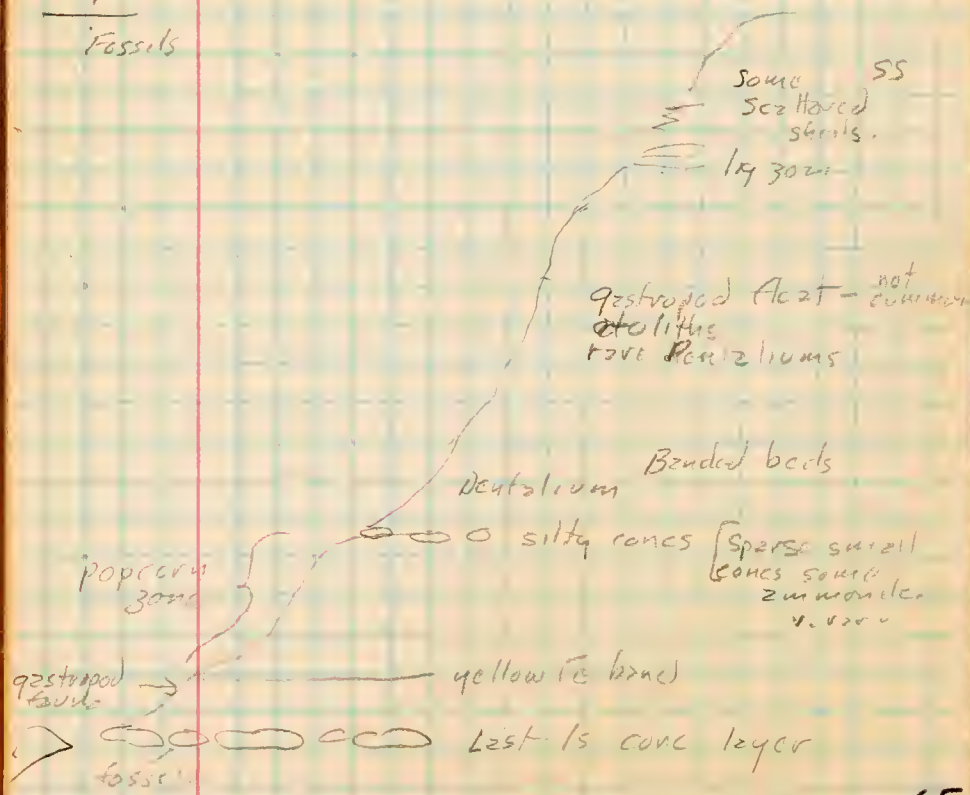 Fossils
Some SS
scattered
shells.
lrg zone
gastropod Acat - not common
otoliths
rare Dentaliums
Banded beds
Dentalium
silty concs [sparse small
concs some
ammonite.
v. rare
popcorn
zone
gastropod
fauna
yellow Fe band
Last ls conc layer
fossil
65